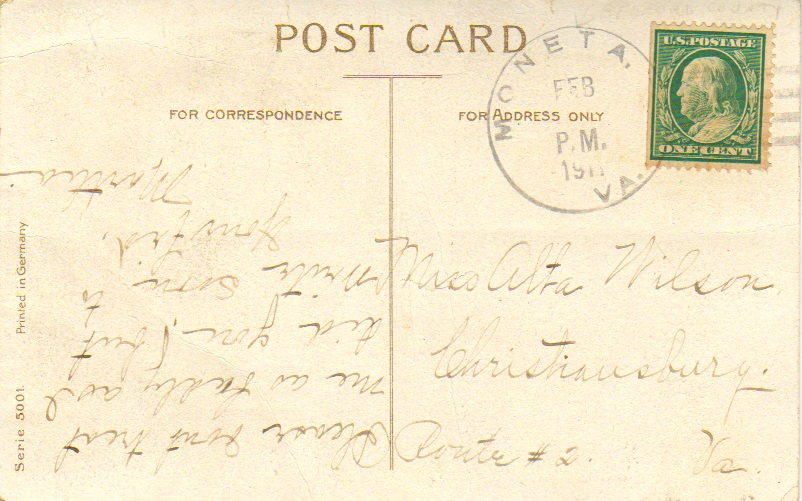 BEDFORD COUNTY
POST CARD
FOR CORRESPONDENCE
FOR ADDRESS ONLY
MONETA,
FEB
P.M.
1911
VA.
U.S. POSTAGE
ONE CENT
Miss Alta Wilson.
Christiansburg.
Route # 2. Va.
Please dont treat
me as badly as I
did you, but to
write soon
Yours frd,
Serie 5001. Printed in Germany